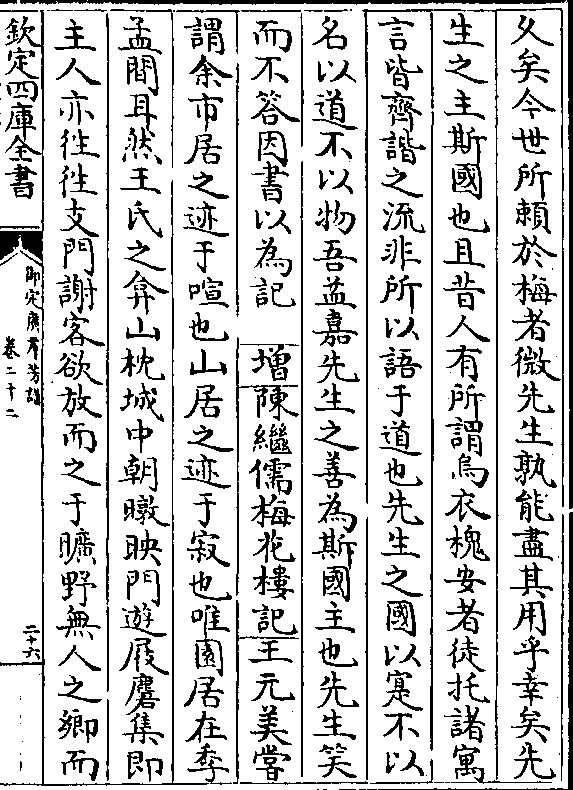 乆矣今世所頼於梅者微先生孰能盡其用乎幸矣先
生之主斯國也且昔人有所謂烏衣槐安者徒托諸寓
言皆齊諧之流非所以語于道也先生之國以寔不以
名以道不以物吾葢嘉先生之善為斯國主也先生笑
而不答因書以為記 增陳繼儒梅花樓記王元美嘗
謂余市居之迹于喧也山居之迹于寂也唯園居在季
孟間耳然王氏之弇山枕城中朝暾映門遊屐麏集即
主人亦徃徃支門謝客欲放而之于曠野無人之鄉而
欽定四庫全書
御定廣羣芳譜
卷二十二
二十六